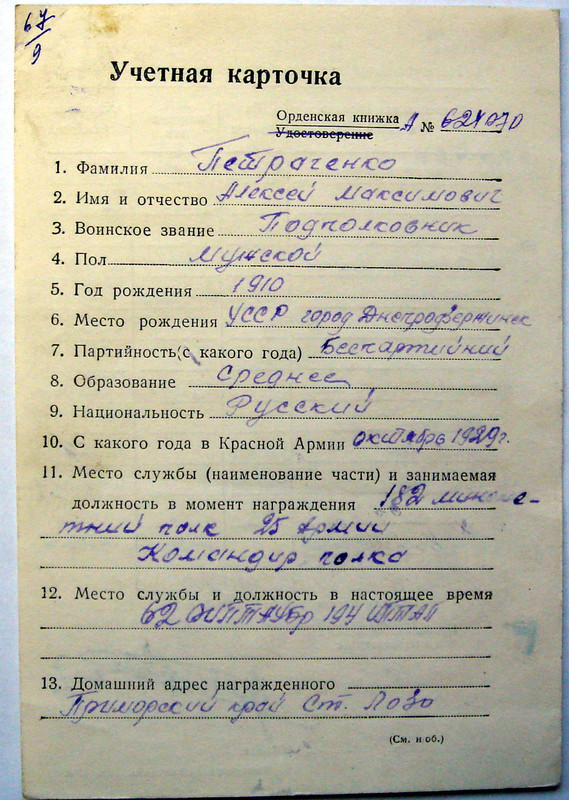 67
9
Учетная карточка
Орденская книжка А № 624070
Удостоверение
1. Фамилия Петраченко
2. Имя и отчество Алексей Максимович
3. Воинское звание Подполковник
4. Пол Мужской
5. Год рождения 1910
6. Место рождения УССР город Днепродзержинск
7. Партийность (с какого года) Беспартийний
8. Образование среднее
9. Национальность Русский
10. С какого года в Красной Армии октябрь 1929 г.
11. Место службы (наименование части) и занимаемая
должность в момент награждения 182 миноме-
тний полк 25 Армии
Командир полка
12. Место службы и должность в настоящее время
62 194
13. Домашний адрес награжденного
Приморский край Ст. Лазо
(См. н об.)